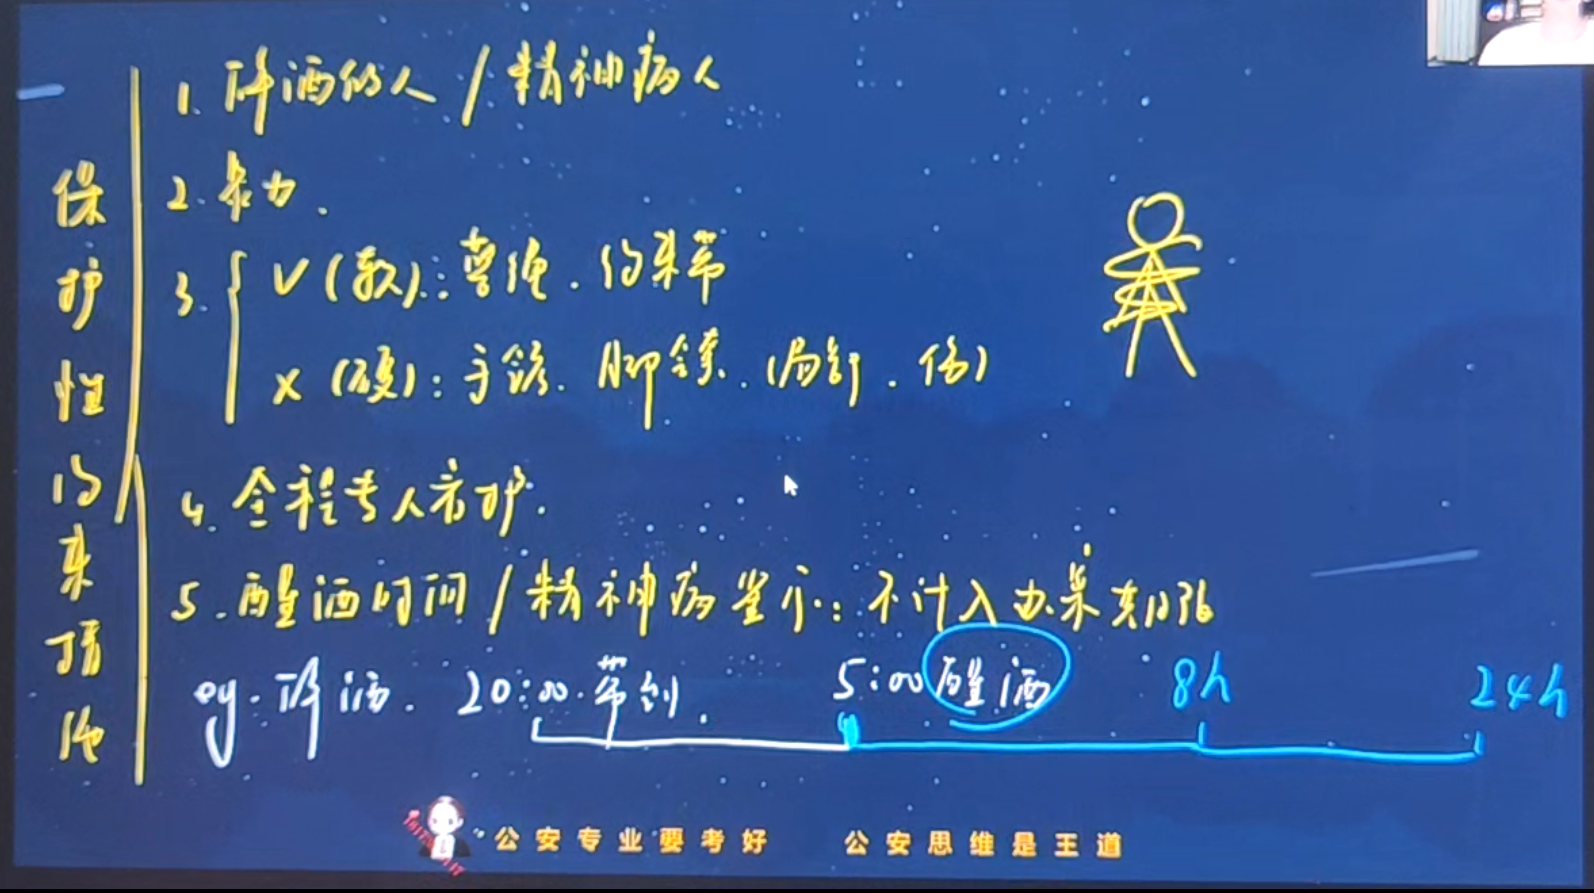 保护性约束措施
1. 醉酒的人 / 精神病人
2. 暴力.
3. { √ (软): 警绳. 约束带
× (硬): 手铐. 脚镣. (局部. 伤)
4. 全程专人看护.
5. 醒酒时间 / 精神病鉴定: 不计入办案期限
eg. 醉酒. 20:00 带到. 5:00 醒酒 8h 24h
公安专业要考好 公安思维是王道